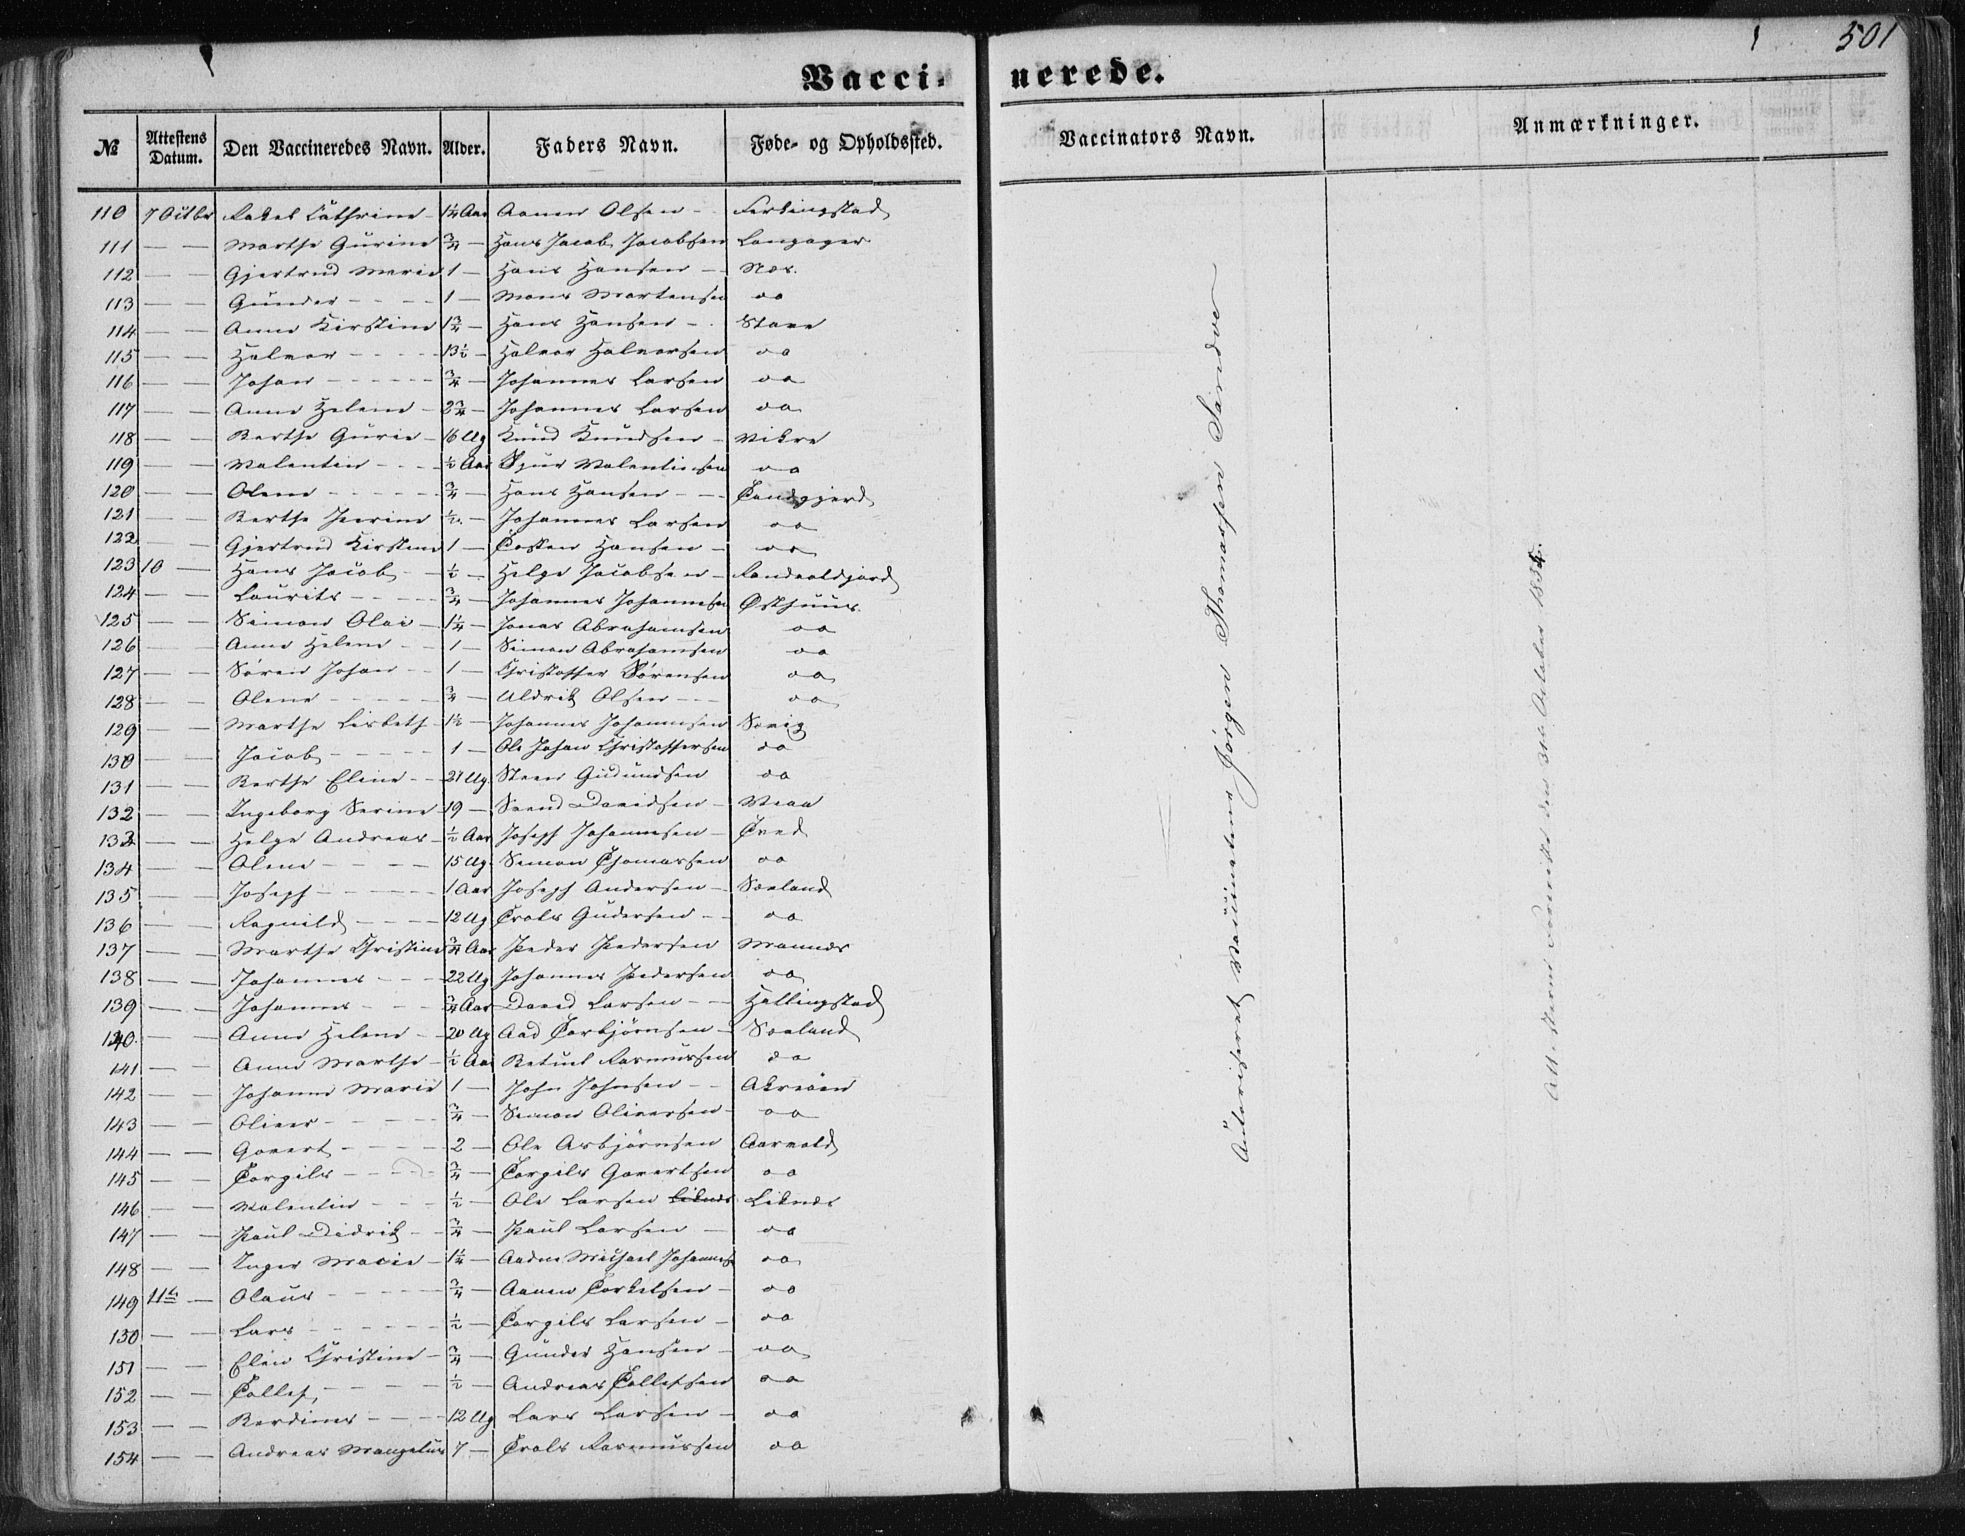 501
Vacci- nerede.
№ Attestens Datum. Den Vaccineredes Navn. Alder. Faders Navn. Føde- og Opholdssted. Vaccinators Navn. Anmærkninger.
110 7 Octbr Rakel Cathrine 1¼ Aar Aanen Olsen Ferkingstad
111 — — Marthe Gurine ¾ — Hans Jacob Jacobsen Langager
112 — — Gjertrud Marie 1 — Hans Hansen Nes.
113 — — Gunder 1 — Mons Mortensen do
114 — — Anne Kirstine 1¾ — Hans Hansen Stave
115 — — Halvor 13½ — Halvor Halvorsen do
116 — — Johan ¾ — Johannes Larsen do
117 — — Anne Helene 2¾ — Johannes Larsen do
118 — — Berthe Gurie 16 Ug Knud Knudsen Vikre
119 — — Valentin ½ Aar Sjur Valentinsen do
120 — — Olene ¾ — Hans Hansen Sandgjerd
121 — — Berthe Perine ½ — Johannes Larsen do
122 — Gjertrud Kirstine 1 — Tosten Hansen do
123 10 — Hans Jacob ½ — Helge Jacobsen
124 — — Laurits ¾ — Johannes Johannesen Østhuus
125 — — Simon Olai 1¼ — Jonas Abrahamsen do
126 — — Anne Helene 1 — Simon Abrahamsen do
127 — — Søren Johan 1 — Christoffer Sørensen do
128 — — Olene ¾ — Aldrik Olsen do
129 — — Marthe Lisbeth 1½ — Johannes Johannesen Sævig
130 — — Jacob 1 — Ole Johan Christoffersen do
131 — — Berthe Eline 21 Ug. Steen Gudmundsen do
132 — — Ingeborg Serine 19 — Svend Davidsen Veaa
133 — — Helge Andreas ½ Aar Joseph Johannesen Tved
134 — — Olene 15 Ug. Simon Thomassen do
135 — — Joseph 1 Aar Joseph Andersen Sæland
136 — — Ragnild 12 Ug Trols Gudersen do
137 — — Marthe Christine ¾ Aar Peder Pedersen Mannes
138 — — Johannes 22 Ug Johannes Pedersen do
139 — — Johannes ¾ Aar David Larsen Hellingstad
140 — — Anne Helene 20 Ug Aad Torbjørnsen Sæland
141 — — Anne Marthe ½ Aar Betuel Rasmussen do
142 — — Johanne Marie 1 — John Johnsen Akreøen
143 — — Oliver ¾ — Simon Oliversen do
144 — — Govert 2 — Ole Asbjørnsen Aarvold
145 — — Torgils ¾ — Torgils Govertsen do
146 — — Valentin ½ — Ole Larsen Liknes Liknes
147 — — Paul Didrik ¾ — Paul Larsen do
148 — — Inger Marie 1¼ — Aadne Michael Johannes do
149 11te — Olaus ¾ — Aanen Torkelsen do
130 — — Lars ½ — Torgils Larsen do
151 — — Elen Christine ¾ — Gunder Hansen do
152 — — Tollef ½ — Andreas Tollefsen do
153 — — Berdines 12 Ug Lars Larsen do
154 — — Andreas Mangelus 7 — Trols Rasmussen do
Autoriseret Vaccinateur Jørgen Thomassen Sandve
Attesterne den 31te October 1854.